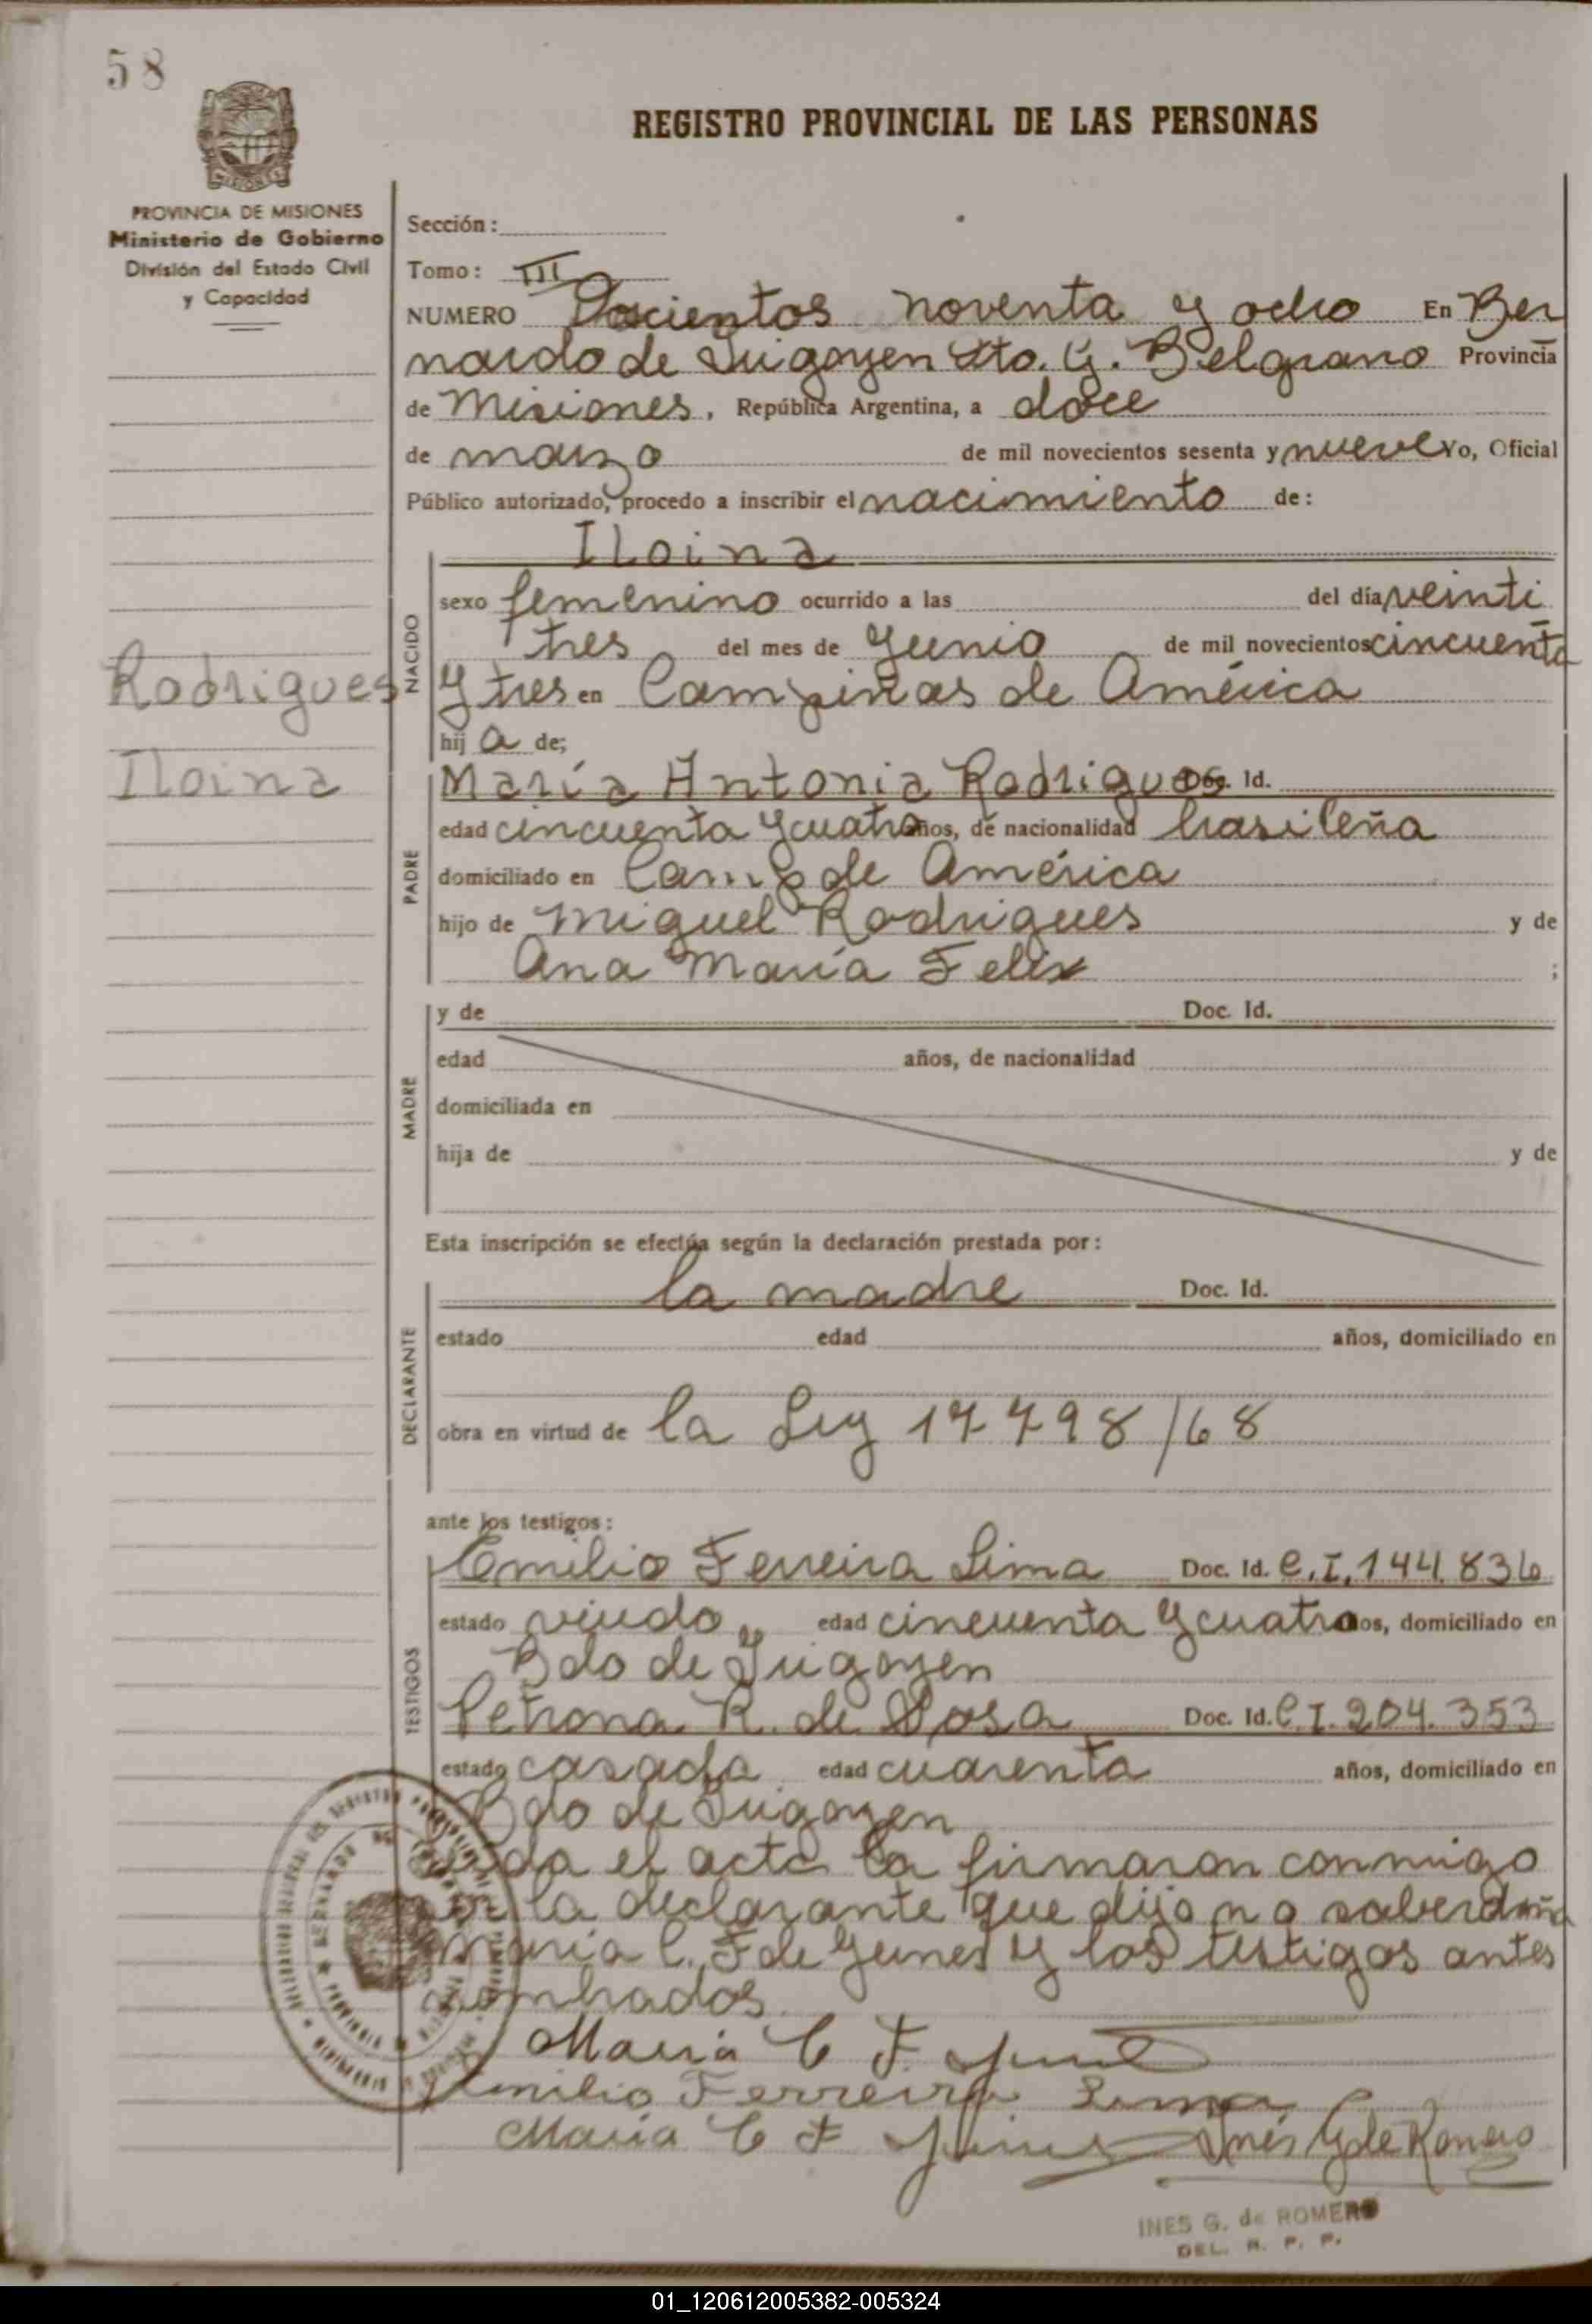 58
REGISTRO PROVINCIAL DE LAS PERSONAS
MISIONES
PROVINCIA DE MISIONES
Ministerio de Gobierno
División del Estado Civil
y Capacidad
Sección:
Tomo: III
NUMERO Doscientos noventa y ocho En Ber
nardo de Irigoyen Dto. G. Belgrano Provincia
de Misiones. República Argentina, a doce
de marzo de mil novecientos sesenta y nueve Yo, Oficial
Público autorizado, procedo a inscribir el nacimiento de:
Iloina
sexo femenino ocurrido a las del día veinti
tres del mes de Junio de mil novecientos cincuenta
y tres en Campinas de América
hij a de;
NACIDO
Rodrigues
Iloina
María Antonia Rodrigues Doc. Id.
edad cincuenta y cuatro años, de nacionalidad brasileña
domiciliado en Camp de América
hijo de Miguel Rodrigues y de
Ana María Felix ;
PADRE
y de Doc. Id.
edad años, de nacionalidad
domiciliada en
hija de y de
MADRE
Esta inscripción se efectúa según la declaración prestada por:
la madre Doc. Id.
estado edad años, domiciliado en
obra en virtud de la Ley 17798/68
DECLARANTE
ante los testigos:
Emilio Ferreira Lima Doc. Id. C.I. 144.836
estado viudo edad cincuenta y cuatro años, domiciliado en
Bdo de Irigoyen
Petrona R. de Sosa Doc. Id. C.I. 204.353
estado casada edad cuarenta años, domiciliado en
Bdo de Irigoyen
TESTIGOS
el acta la firmaron conmigo
la declarante que dijo no saber doña
María C. F de Junes y los testigos antes
nombrados
María C F.
Emilio Ferreira Lima
María C F Inés G de Romero
INES G. de ROMERO
DEL. R. P. P.
01_120612005382-005324